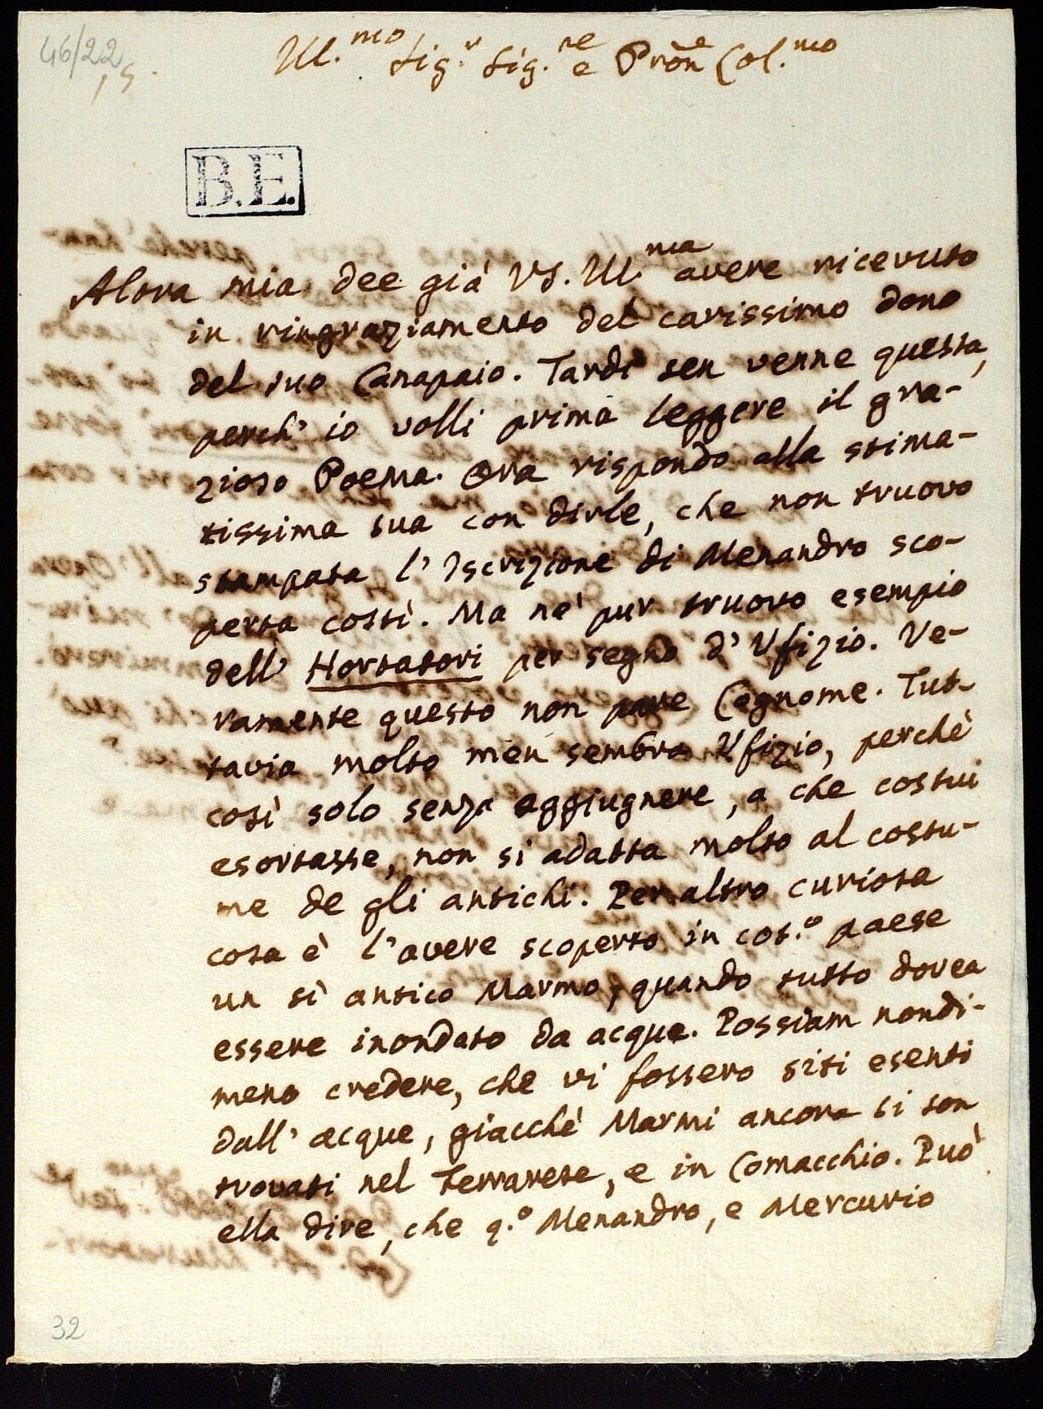 46/22
15.
Ill.mo Sig.r Sig.re e Pron.e Col.mo
B.E.
Alora mia dee già VS. Ill.ma avere ricevuto
in ringraziamento del carissimo dono
del suo Canapaio. Tardi sen venne questa,
perch' io volli prima leggere il gra-
zioso Poema. Ora rispondo alla stima-
tissima sua con dirle, che non truovo
stampata l' Iscrizione di Menandro sco-
perta costì. Ma nè pur truovo esempio
dell' Hortatori per segno d' Ufizio. Ve-
ramente questo non pare Cognome. Tut-
tavia molto men sembra Ufizio, perchè
così solo senza aggiugnere, a che costui
esortasse, non si adatta molto al costu-
me de gli antichi. Per altro curiosa
cosa è l' avere scoperto in cot.o paese
un sì antico Marmo, quando tutto dovea
essere inondato da acque. Possiam nondi-
meno credere, che vi fossero siti esenti
dall' acque, giacchè Marmi ancora si son
trovati nel Ferrarese, e in Comacchio. Può
ella dire, che q.o Menandro, e Mercurio
32